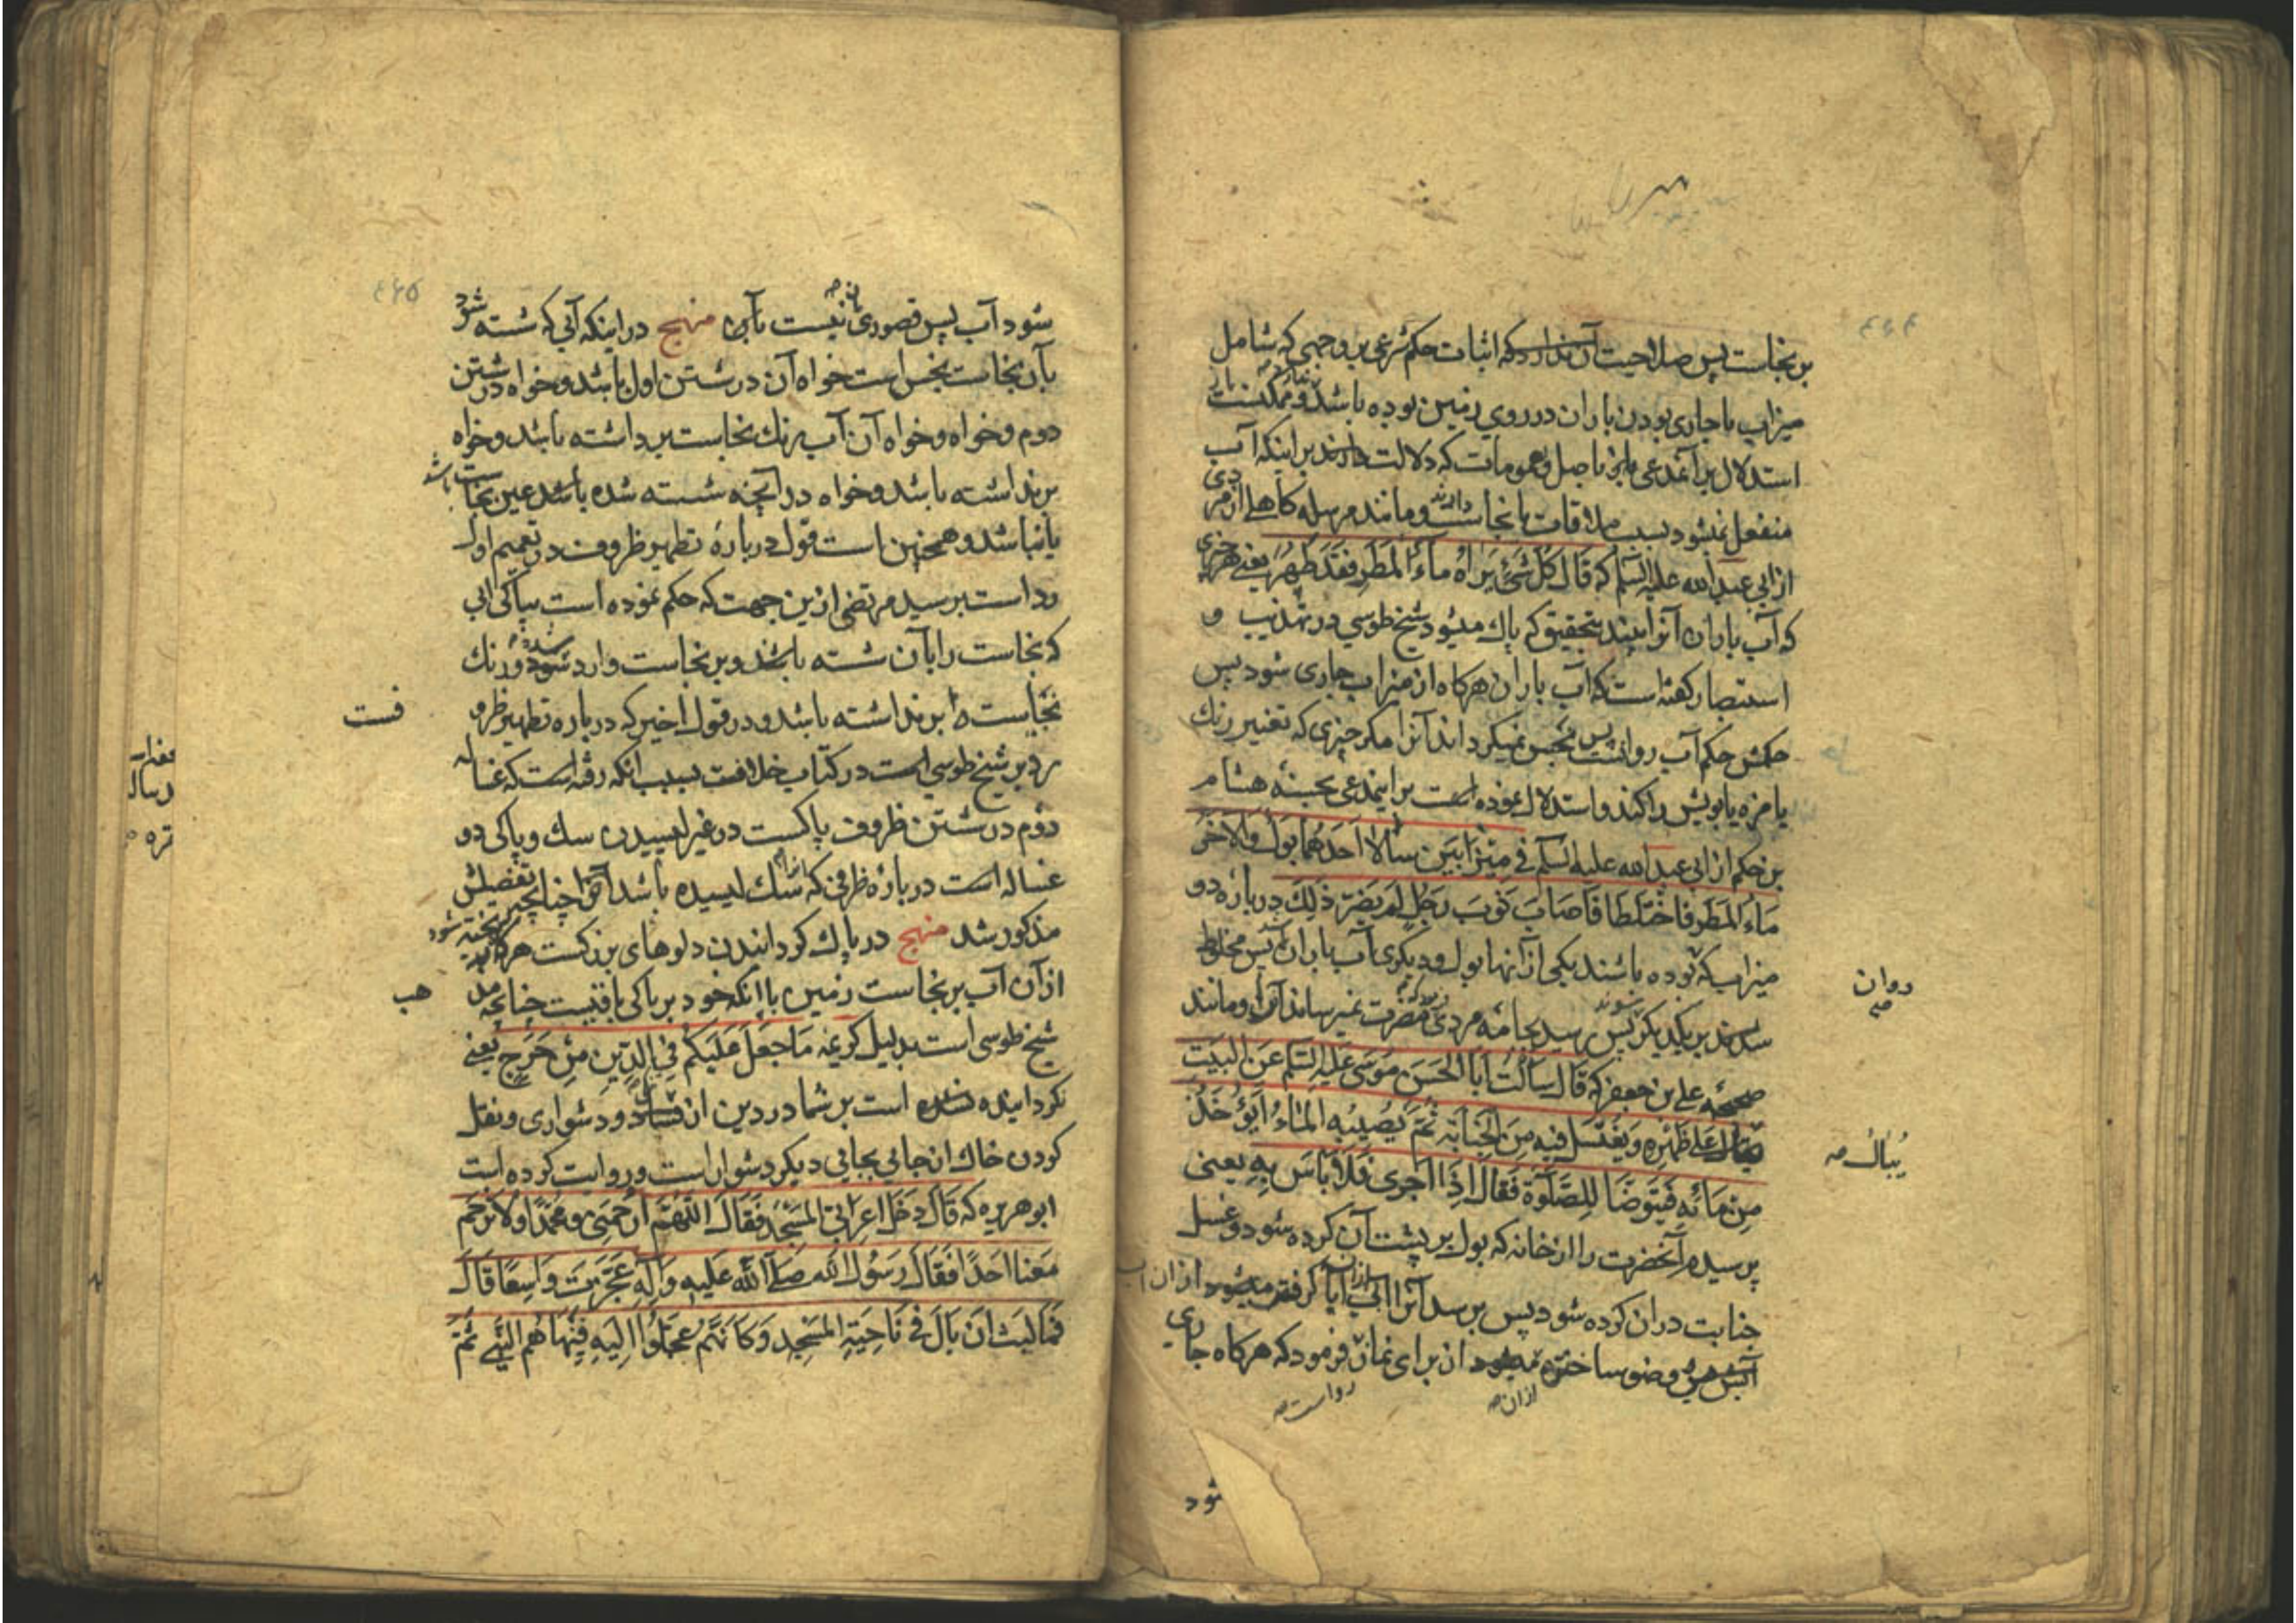 ۴۶۴
بر نجاست پس صلاحیت آن ندارد که اثبات حکم شرعی بر وجهی که شامل
میزاب یا جاری بودن باران در روی زمین بوده باشد و ممکنست
استدلال بر آنمدعی باصل و عمومات که دلالت دارند بر اینکه آب
منفعل نمیشود بسبب ملاقات با نجاست و مانند مرسله کاهلی از مردی
از ابی عبد الله علیه السلم که قال کُلُّ شَئٍ یَرَاهُ مَاءُ المَطَرِ فَقَد طَهُرَ یعنی هر چیزی
که آب باران آنرا به بیند بتحقیق که پاک میشود شیخ طوسی در تهذیب و
استبصار کفته است که آب باران هرکاه از میزاب جاری شود پس
حکمش حکم آب روانست پس نجس نمیکرداند آنرا مکر چیزی که تغییر رنک
یا مزه یا بویش را کند و استدلال نموده است بر اینمدعی بحسنهٔ هشام
بن حکم از ابی عبد الله علیه السلم فی مِیزَابَینِ سَالا اَحَدُهُمَا بَولٌ وَالاخَرُ
مَاءُ المَطَرِ فَاختَلَطَا فَاَصَابَ ثَوبَ رَجُلٍ لَم یَضُرَّ ذٰلِکَ در بارهٔ دو
میزاب که بوده باشند یکی از آنها بول و دیکری آب باران پس مخلوط
شوند بر یکدیکر پس برسد بجامهٔ مردی مضرت نمیرساند آنرا و مانند
صحیحهٔ علی بن جعفر که قَالَ سَاَلتُ اَبَا الحَسَنِ مُوسَی عَلَیهِ السَّلم عَنِ البَیتِ
یُبَالُ عَلٰی ظَهرِهِ وَیُغتَسَلُ فِیهِ مِنَ الجَنَابَةِ ثُمَّ یُصِیبُهُ المَاءُ اَیُؤخَذُ
مِن مَائِهِ فَیُتَوَضَّا لِلصَّلٰوةِ فَقَالَ اِذَا جَرٰی فَلَا بَاسَ بِهِ یعنی
پرسیدم آنحضرت را از خانه که بول بر پشت آن کرده شود و غسل
جنابت در آن کرده شود پس برسد آنرا آبی آیا کرفته میشود از آن آب
وضو ساختن از برای نماز فرمود که هرکاه جاری
روان صح
یُبالُ صح
از ان صح
رواست صح
شود
۴۶۵
شود آب پس قصوری نیست بآن منهج در اینکه آبی که شسته شود
بآن نجاست نجس است خواه آن در شستن اول باشد و خواه در شستن
دوم و خواه و خواه آن آب رنک نجاست برداشته باشد و خواه
برنداشته باشد و خواه در آنچه شسته شده باشد عین نجاست باشد
یا نباشد و همچنین است قول در بارهٔ تطهیر ظروف در تعمیم اول
رد است بر سید مرتضی ازین جهت که حکم نموده است بپاکی آبی
که نجاست را بآن شسته باشند و بر نجاست وارد شود و رنک
نجاست را برنداشته باشد و در قول اخیر که در باره تطهیر ظروف
رد بر شیخ طوسی است در کتاب خلاف بسبب آنکه رفته است که غساله
دوم در شستن ظروف پاکست در غیر لیسیدن سک و پاکی دو
غساله است در بارهٔ ظرفی که آنرا سک لیسیده باشد چنانچه تفصیلش
مذکور شد منهج در پاک کردانیدن دلوهای بزرکست هرکاه ریخته شود
از آن آب بر نجاست زمین با آنکه خود بر پاکی باقیست چنانچه مذهب
شیخ طوسی است بدلیل کریمهٔ مَا جَعَلَ عَلَیکُم فِی الدِّینِ مِن حَرَجٍ یعنی
نکردانیده است بر شما در دین از و دشواری و نقل
کردن خاک از جائی بجائی دیکر دشوار است و روایت کرده است
ابو هریره که قَالَ دَخَلَ اَعرَابِیٌّ المَسجِدَ فَقَالَ اللّٰهُمَّ ارحَمنِی وَمُحَمَّدًا وَلَا تَرحَم
مَعَنَا اَحَدًا فَقَالَ رَسُولُ الله صَلَّی اللهُ عَلَیهِ وَآلِهِ عَجَّزتَ وَاسِعًا قَالَ
فَمَا لَبِثَ اَن بَالَ فِی نَاحِیَةِ المَسجِدِ وَکَاَنَّهُم عَجِلُوا اِلَیهِ فَنَهَاهُم النَّبِی ثُمَّ